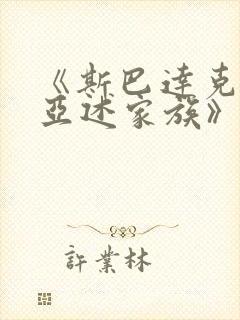 《斯巴達克
亞述家族》
許業林